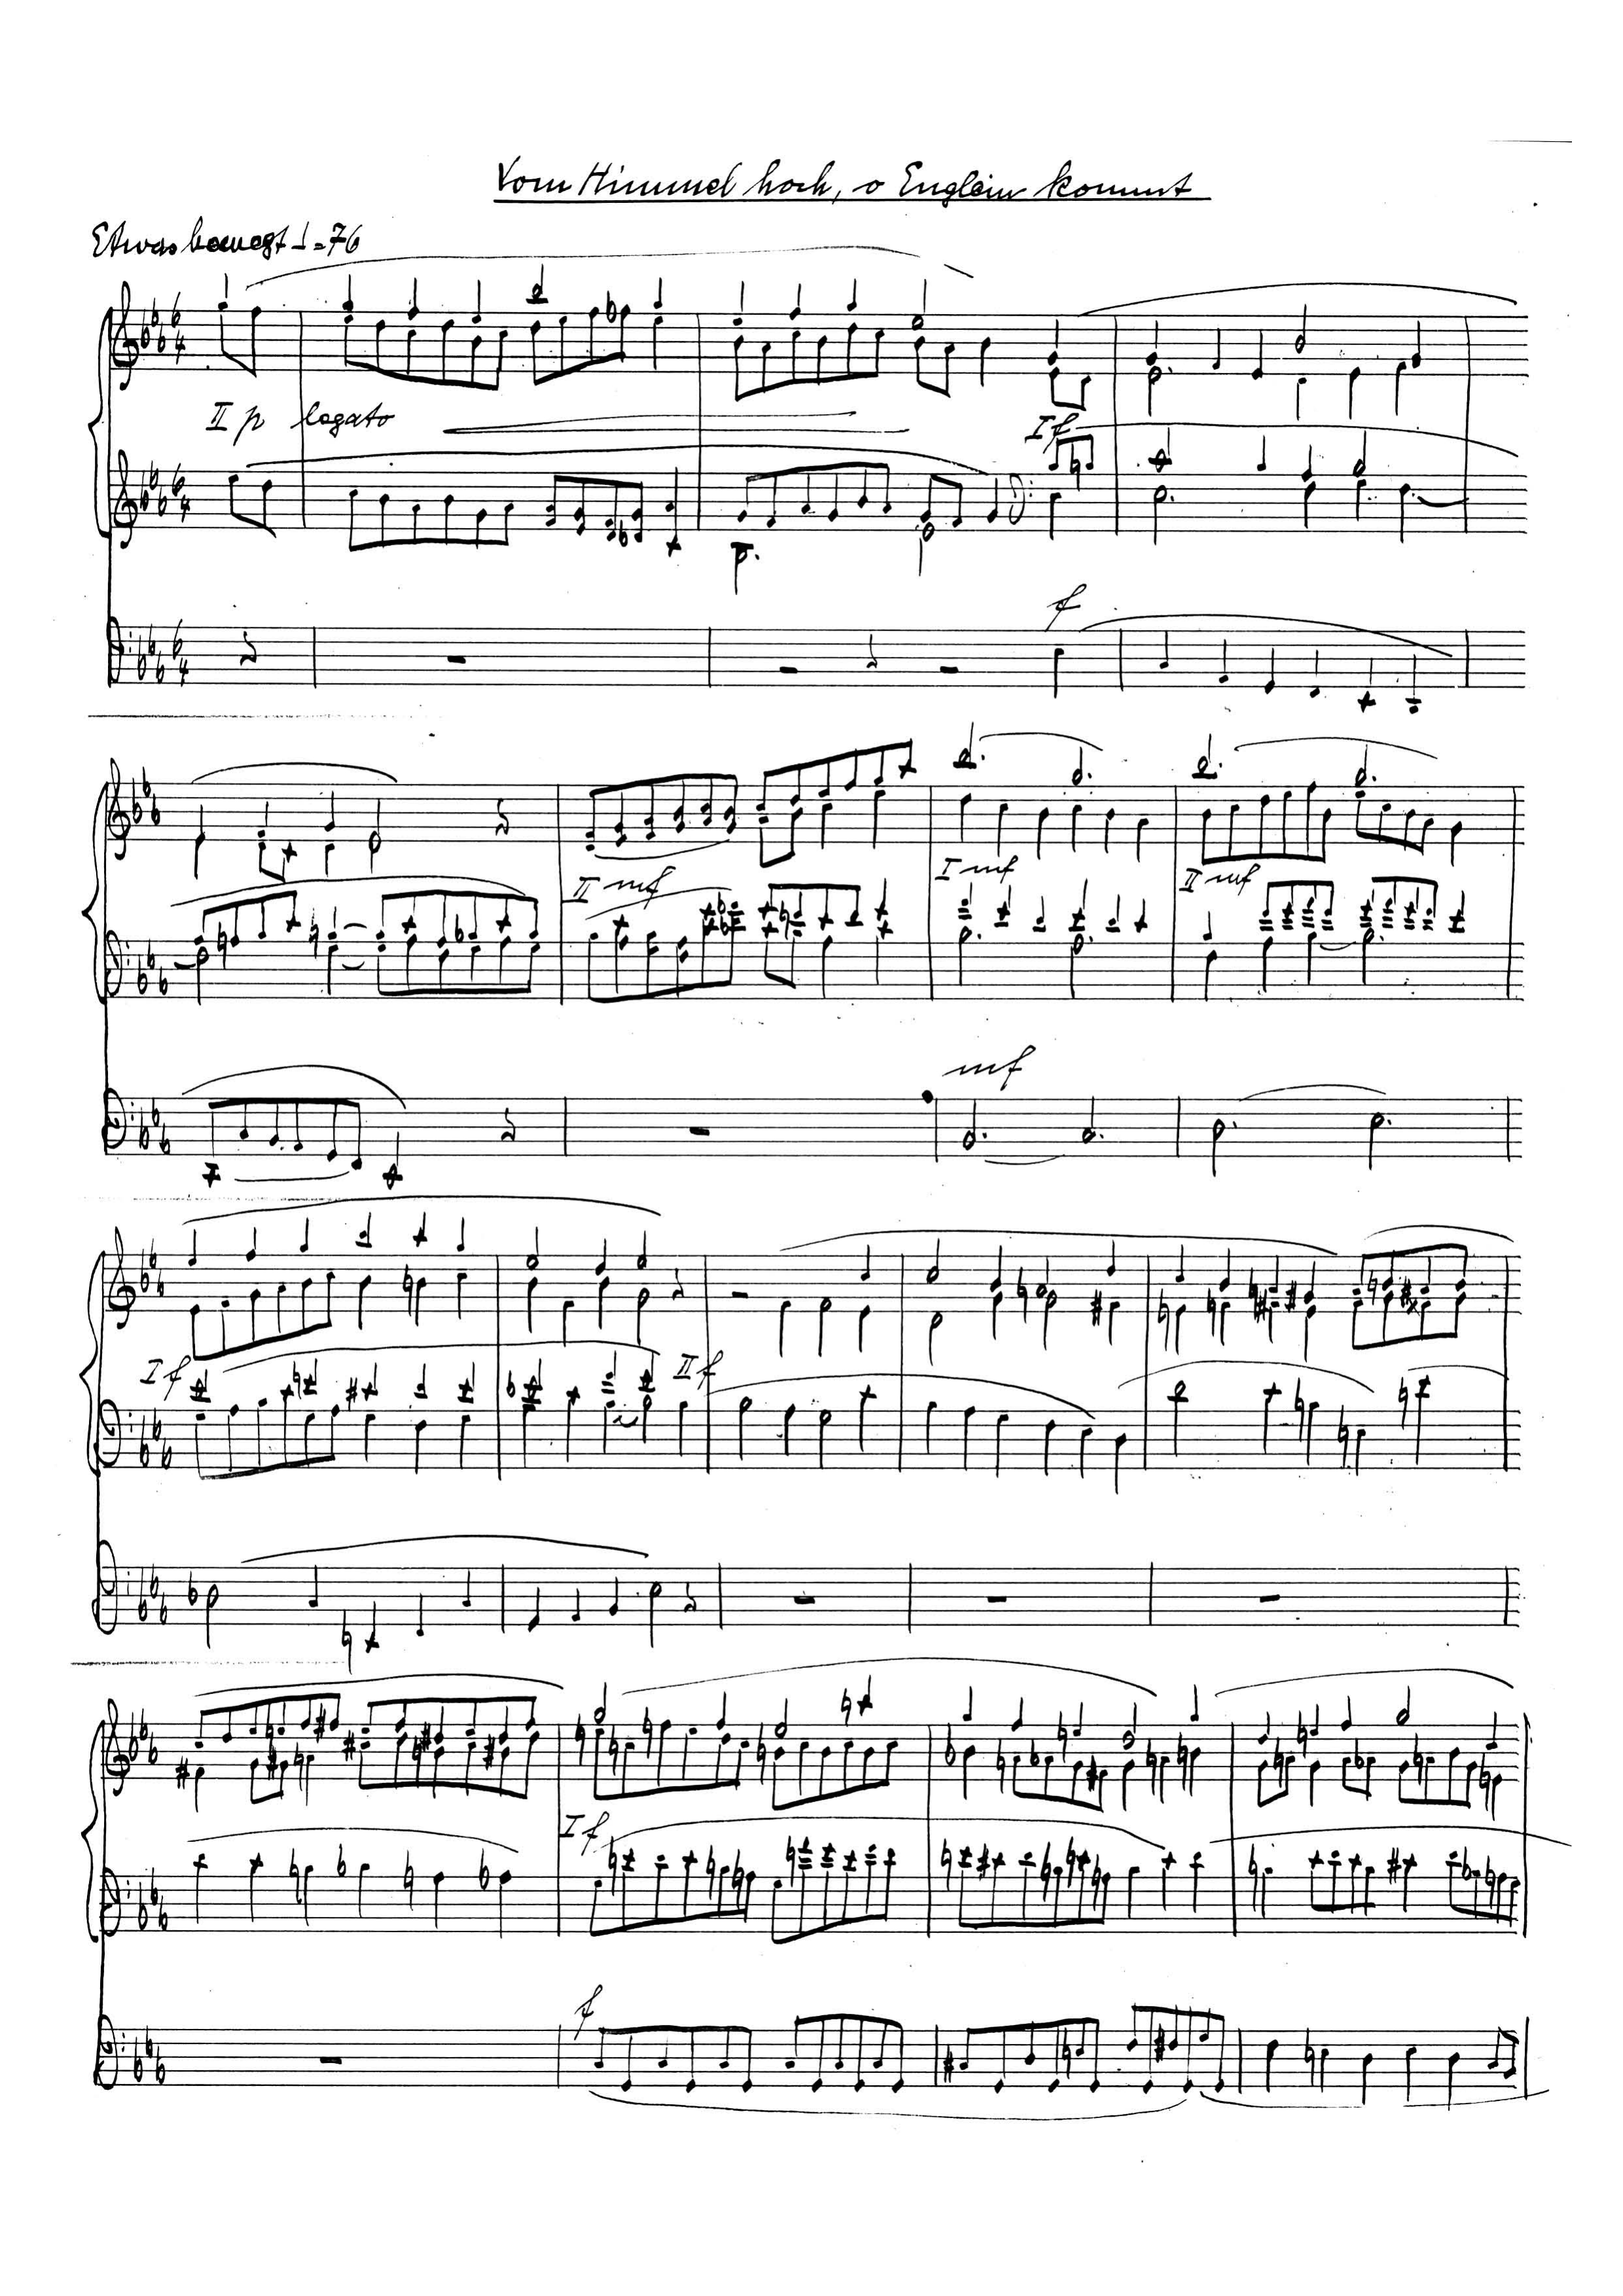 Vom Himmel hoch, o Englein kommt
Etwas bewegt ♩=76
II p legato
I f
f
II mf
I mf
II mf
mf
I f
II f
I f
f